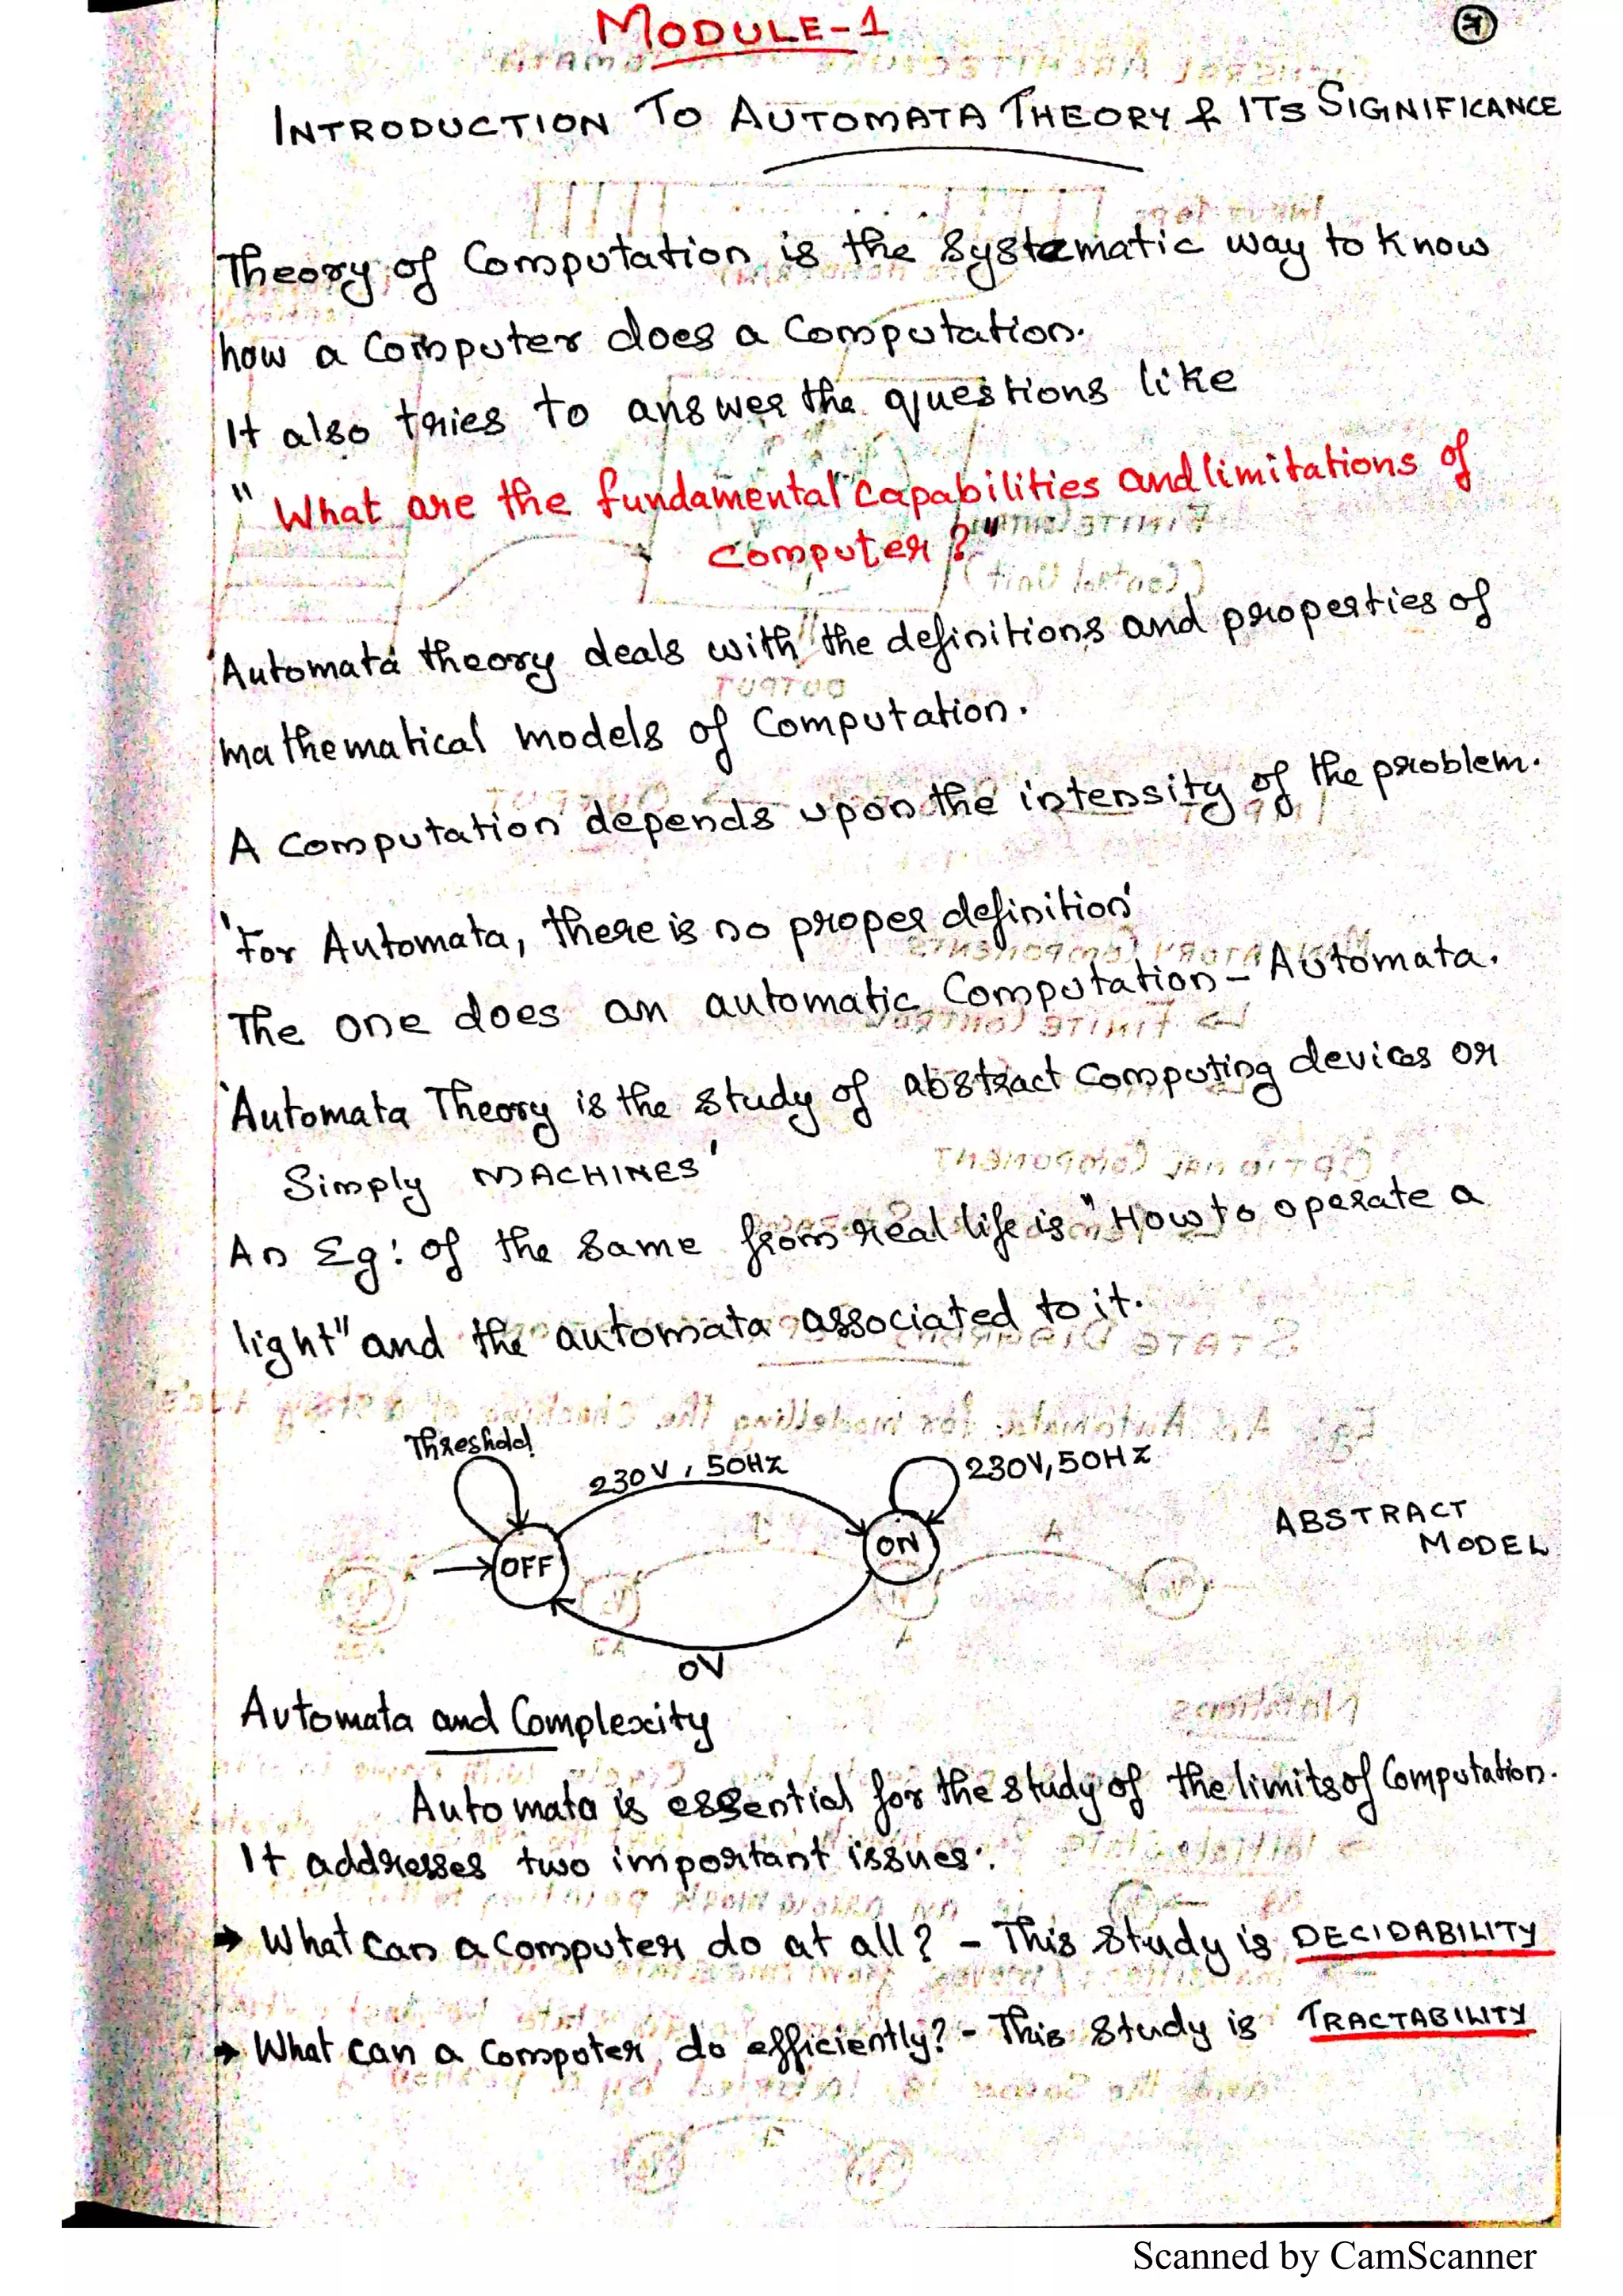 MODULE-1
INTRODUCTION TO AUTOMATA THEORY & ITS SIGNIFICANCE
Theory of Computation is the systematic way to know
how a Computer does a Computation.
It also tries to answer the questions like
"What are the fundamental capabilities and limitations of
computer?"
'Automata theory deals with the definitions and properties of
mathematical models of Computation.
A Computation depends upon the intensity of the problem.
'For Automata, there is no proper definition'
The one does an automatic Computation - Automata.
'Automata Theory is the study of abstract Computing devices or
Simply MACHINES'
An Eg: of the same from real life is "How to operate a
light" and the automata associated to it.
Threshold
230V, 50Hz
230V, 50Hz
OFF
ON
ABSTRACT
MODEL
0V
Automata and Complexity
Automata is essential for the study of the limits of Computation.
It addresses two important issues:
→ What can a Computer do at all? - This study is DECIDABILITY
→ What can a Computer do efficiently? - This study is TRACTABILITY
Scanned by CamScanner